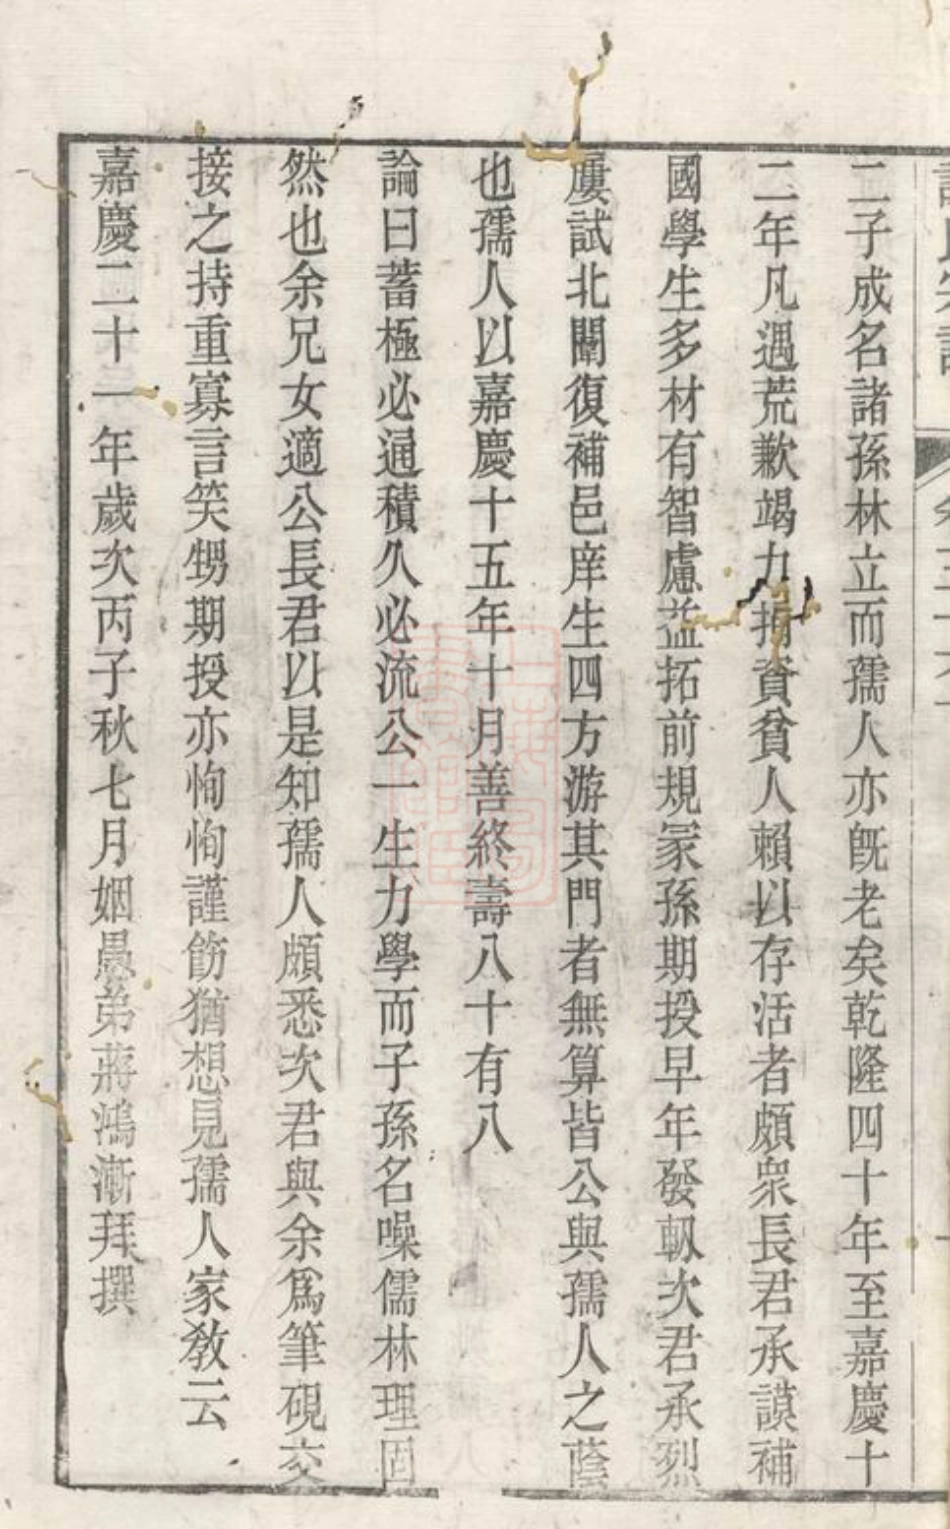 二子成名諸孫林立而孺人亦旣老矣乾隆四十年至嘉慶十
二年凡遇荒歉竭力捐資貧人賴以存活者頗衆長君承謨補
國學生多材有智慮益拓前規冡孫期授早年發軔次君承烈
屢試北闈復補邑庠生四方游其門者無算皆公與孺人之蔭
也孺人以嘉慶十五年十月善終壽八十有八
論曰蓄極必通積久必流公一生力學而子孫名噪儒林理固
然也余兄女適公長君以是知孺人頗悉次君與余爲筆硯交
接之持重寡言笑甥期授亦恂恂謹飭猶想見孺人家敎云
嘉慶二十一年歲次丙子秋七月姻愚弟蔣鴻漸拜撰